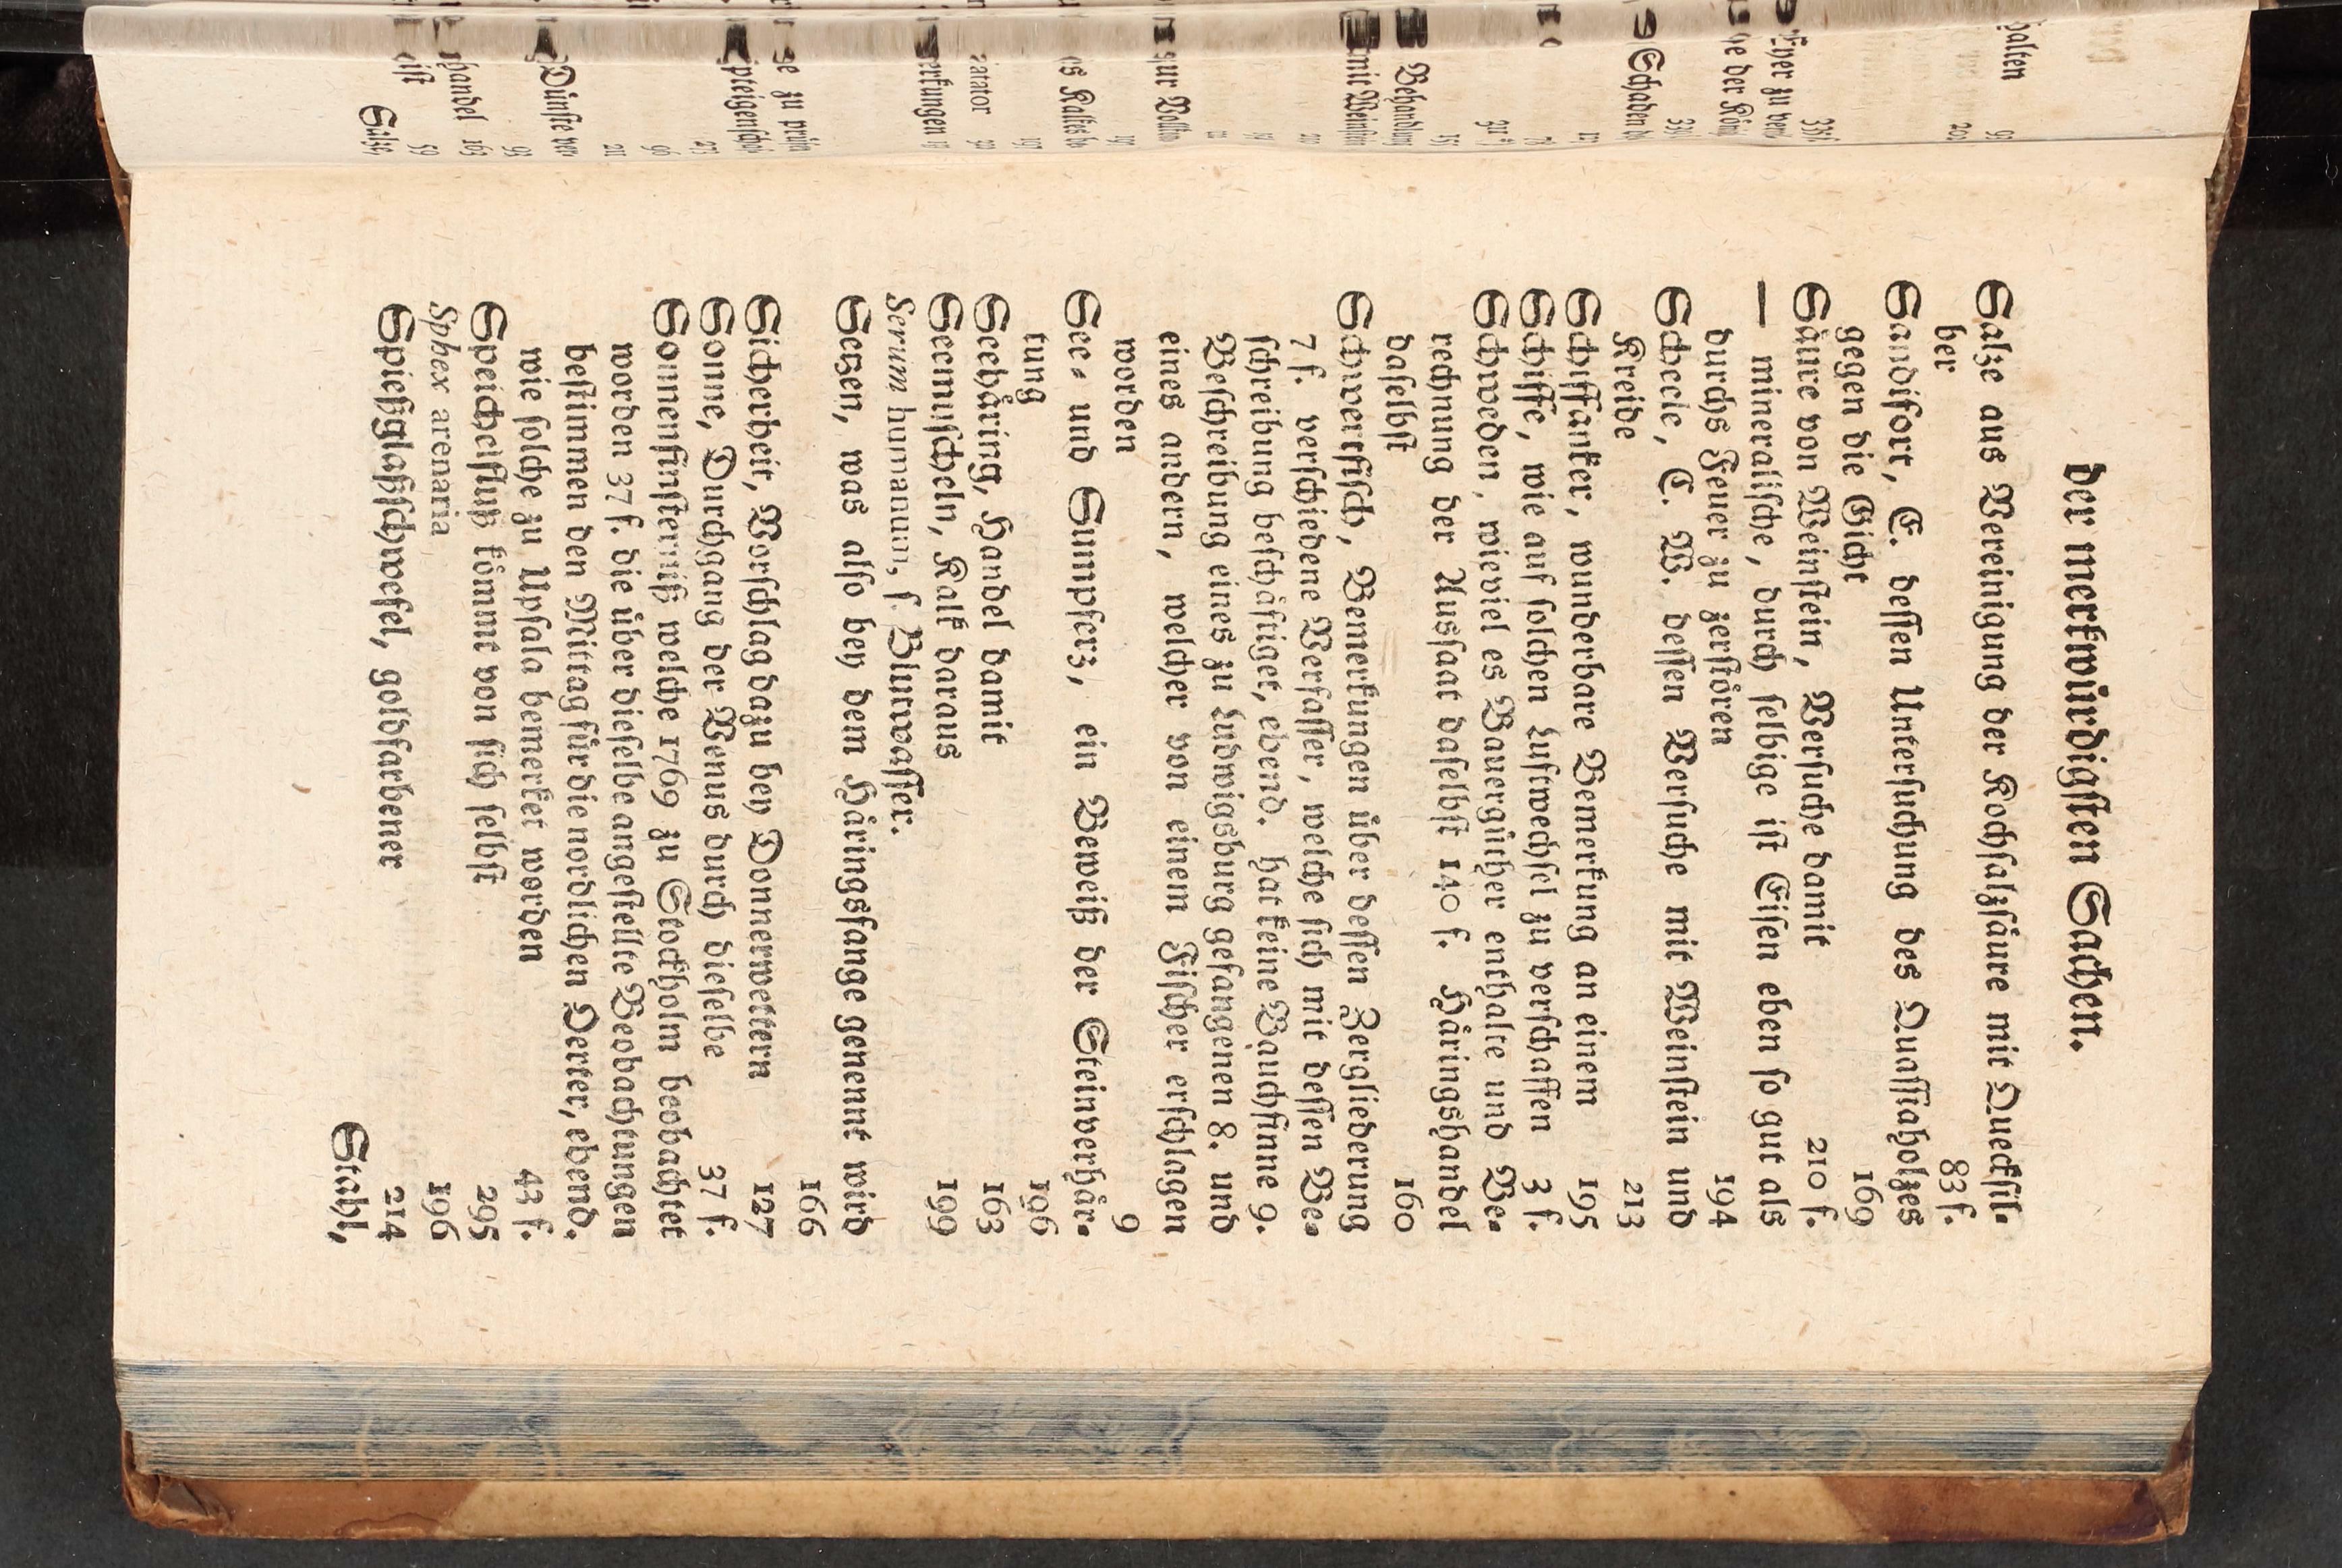 der merkwürdigsten Sachen.
Salze aus Vereinigung der Kochsalzsäure mit Quecksil-
ber 83 f.
Sandifort, E. dessen Untersuchung des Quassiaholzes
gegen die Gicht 169
Säure von Weinstein, Versuche damit 210 f.
— mineralische, durch selbige ist Eisen eben so gut als
durchs Feuer zu zerstören 194
Scheele, C. W. dessen Versuche mit Weinstein und
Kreide 213
Schiffanker, wunderbare Bemerkung an einem 195
Schiffe, wie auf solchen Luftwechsel zu verschaffen 3 f.
Schweden, wieviel es Bauergüther enthalte und Be-
rechnung der Aussaat daselbst 140 f. Häringshandel
daselbst 160
Schwertfisch, Bemerkungen über dessen Zergliederung
7 f. verschiedene Verfasser, welche sich mit dessen Be-
schreibung beschäftiget, ebend. hat keine Bauchfinne 9.
Beschreibung eines zu Ludwigsburg gefangenen 8. und
eines andern, welcher von einem Fischer erschlagen
worden 9
See- und Sumpferz, ein Beweiß der Steinverhär-
tung 196
Seehäring, Handel damit 163
Seemuscheln, Kalk daraus 199
Serum humanum, s. Blutwasser.
Setzen, was also bey dem Häringsfange genennt wird
166
Sicherheit, Vorschlag dazu bey Donnerwettern 127
Sonne, Durchgang der Venus durch dieselbe 37 f.
Sonnenfinsterniß welche 1769 zu Stockholm beobachtet
worden 37 f. die über dieselbe angestellte Beobachtungen
bestimmen den Mittag für die nordlichen Oerter, ebend.
wie solche zu Upsala bemerket worden 43 f.
Speichelfluß kömmt von sich selbst 295
Sphex arenaria 196
Spießglaßschwefel, goldfarbener 214
Stahl,